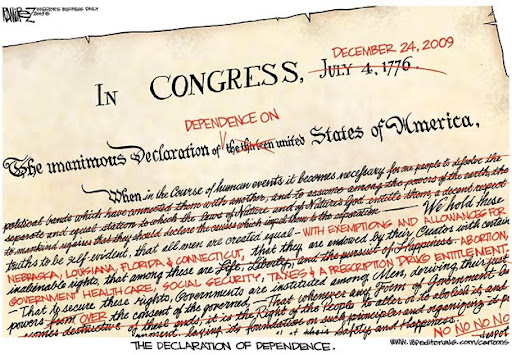 RAMIREZ
INVESTOR'S BUSINESS DAILY
DECEMBER 24, 2009
IN CONGRESS, JULY 4, 1776.
DEPENDENCE ON
The unanimous Declaration of the thirteen united States of America,
When in the Course of human events it becomes necessary for one people to dissolve the
political bands which have connected them with another, and to assume among the powers of the earth, the
separate and equal station to which the Laws of Nature and of Nature's God entitle them, a decent respect
to mankind requires that they should declare the causes which impel them to the separation — We hold these
truths to be self evident, that all men are created equal - WITH EXEMPTIONS AND ALLOWANCES FOR
NEBRASKA, LOUISIANA, FLORIDA & CONNECTICUT, that they are endowed by their Creator with certain
inalienable rights, that among these are Life, Liberty, and the pursuit of Happiness. ABORTION,
GOVERNMENT HEALTH CARE, SOCIAL SECURITY, TAXES & A PRESCRIPTION DRUG ENTITLEMENT.
— That to secure these rights, Governments are instituted among Men, deriving their just
powers from OVER the consent of the governed, — That whenever any Form of Government
destructive of these ends, it is the Right of the People to alter or to abolish it, and
laying its foundation on such principles and organizing its
their Safety and Happiness.
NO NO NO NO
THE DECLARATION OF DEPENDENCE.
www.IBDeditorials.com/cartoons